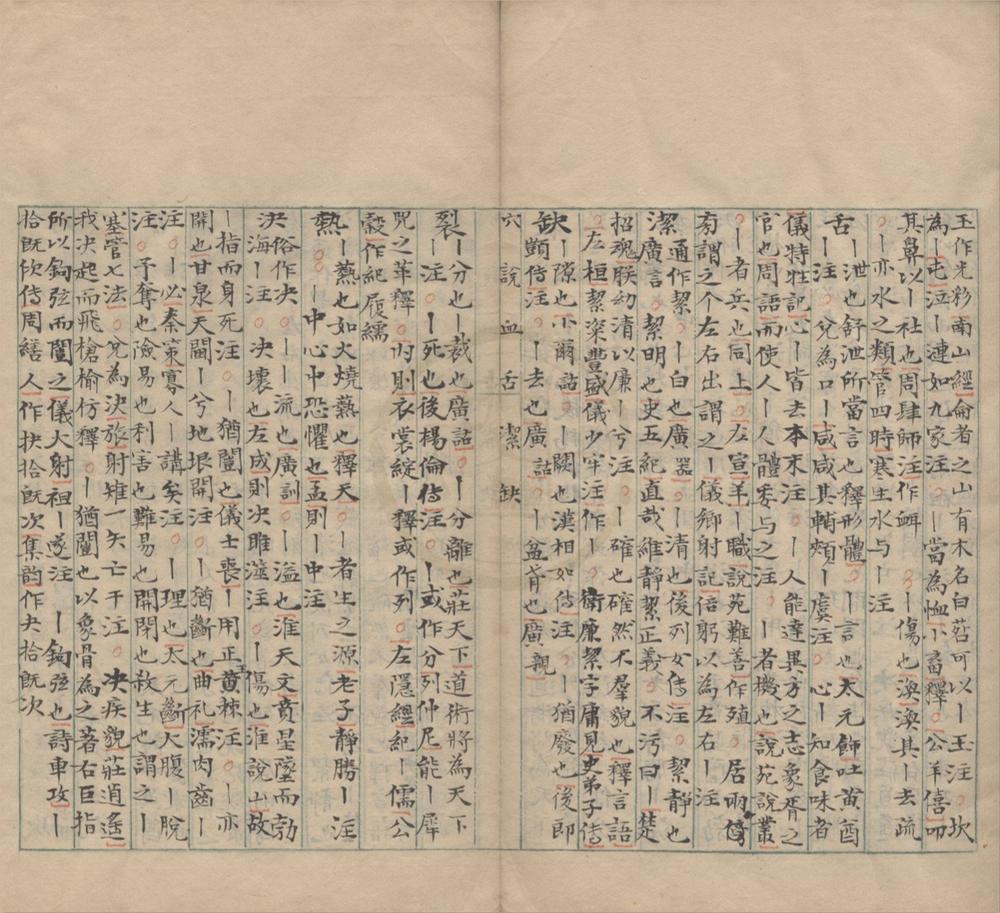 玉作光彩南山經侖者之山有木名白䓘可以丨玉注坎
為丨屯泣丨漣如九家注○丨當為恤小畜釋○公羊僖叩
其鼻以丨社也周肆師注作衈○○丨傷也渙渙其丨去疏
○丨亦水之類管四時寒生水与丨注
舌丨泄也舒泄所當言也釋形體○丨言也太元飾吐黃酋
丨注○兌為口丨咸咸其輔頰丨虞注○心丨知食味者
儀特牲記心丨皆去本末注○丨人能達異方之志象胥之
官也周語而使人丨人體委与之注○丨者機也說苑說叢
○丨者兵也同上○左宣羊丨職說苑難善作殖○居兩傍
旁謂之个左右出謂之丨儀鄉射記倍躬以為左右丨注
通作絜○丨白也廣器○丨清也後列女傳注○絜靜也
潔廣言○絜明也史五紀直哉維靜絜正義○不污曰丨楚
招魂朕幼清以廉丨兮注○丨確也確然不羣貌也釋言語
○左桓絜粢豐盛儀少牢注作丨○衛廉絜字庸見史弟子傳
缺丨隙也小爾詁○丨闕也漢相如傳注○丨猶廢也後郎
顗傳注○丨去也廣詁○丨盆肻也廣親
穴 說 血 舌 潔 缺
裂丨分也丨裁也廣詁○丨分離也莊天下道術將為天下
丨注○丨死也後楊倫傳注○丨或作分列仲尼能丨犀
兕之革釋○內則衣裳綻丨釋或作列○左隱經紀丨繻公
穀作紀履繻
熱丨爇也如火燒爇也釋天○丨者生之源老子靜勝丨注
○○丨中心中恐懼也孟則丨中注
決俗作决○丨流也廣訓○丨溢也淮天文賁星墜而勃
海丨注○决壞也左成則决雎澨注○丨傷也淮說山故
丨指而身死注○丨猶闓也儀士喪丨用正王黃棘注○丨亦
開也甘泉天閫丨兮地垠開注○丨猶斷也曲礼濡肉齒丨
注○丨必秦策寡人丨講矣注○丨理也太元斷大腹丨脫
注○予奪也險易也利害也難易也開閉也殺生也謂之丨
塞管七法○兌為決旅射雉一矢亡干注○决疾貌莊逍遙
我決起而飛槍榆枋釋○丨猶闓也以象骨為之著右巨指
所以鉤弦而闓之儀大射祖丨遂注○丨鉤弦也詩車攻丨
拾既佽傳周繕人作抉拾既次集韵作夬拾既次